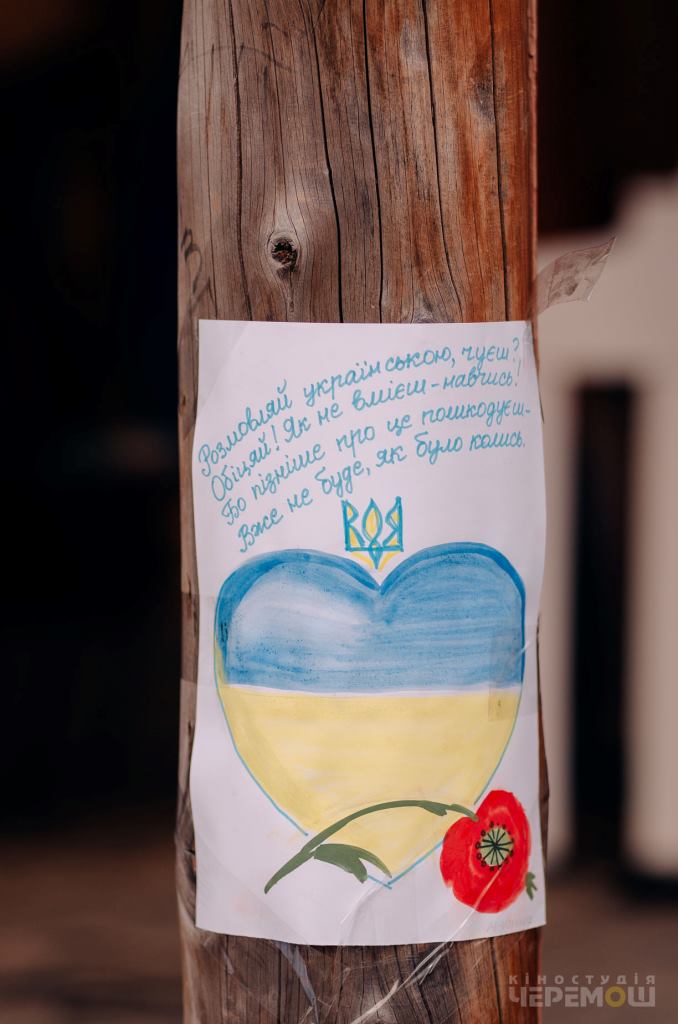 Розмовляй українською, чуєш?
Обіцяй! Як не вмієш - навчись!
Бо пізніше про це пошкодуєш-
Вже не буде, як було колись.
ВОЯ
КІНОСТУДІЯ
ЧЕРЕМОШ